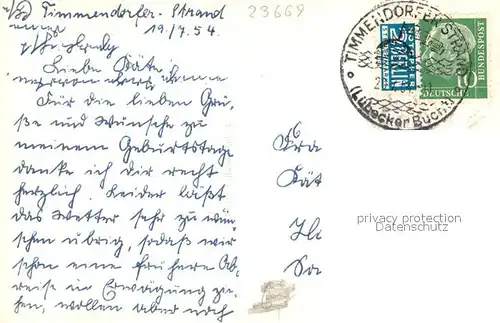 Timmendorfer-Strand
19/7.54.
23669
Liebe Käte!
Für die lieben Grü-
ße und Wünsche zu
meinem Geburtstage
danke ich dir recht
herzlich. Leider läßt
das Wetter sehr zu wün-
schen übrig, sodaß wir
schon eine frühere Ab-
reise in Erwägung zie-
hen, wollen aber noch
Fra
Kät
TIMMENDORFER STRAND
(Lübecker Bucht)
NOTOPFER
2 BERLIN
STEUERMARKE
10
DEUTSCHE
BUNDESPOST
privacy protection
Datenschutz